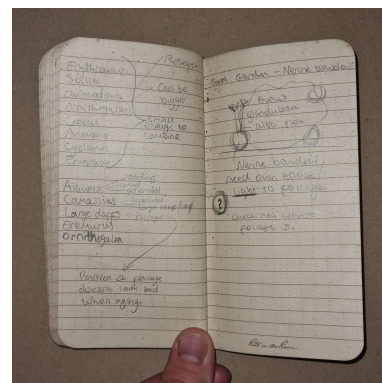 Erythronium
Scilla
Chionodoxa
Ornithogalum
Crocus
Anemone
Cyclamen
Eranthis
Can be
bigger
small
enough to
combine
Alliums
Camassias
Large daffs
Eremurus
Ornithogalon
Position so foliage
doesn't look bad
when aging.
Garden - Nerine bowdenii
Prunus
glandulosa
alba plena
Nerine bowdenii
need own space /
light to foliage.
?
Check now where
foliage is.
Rite in the Rain